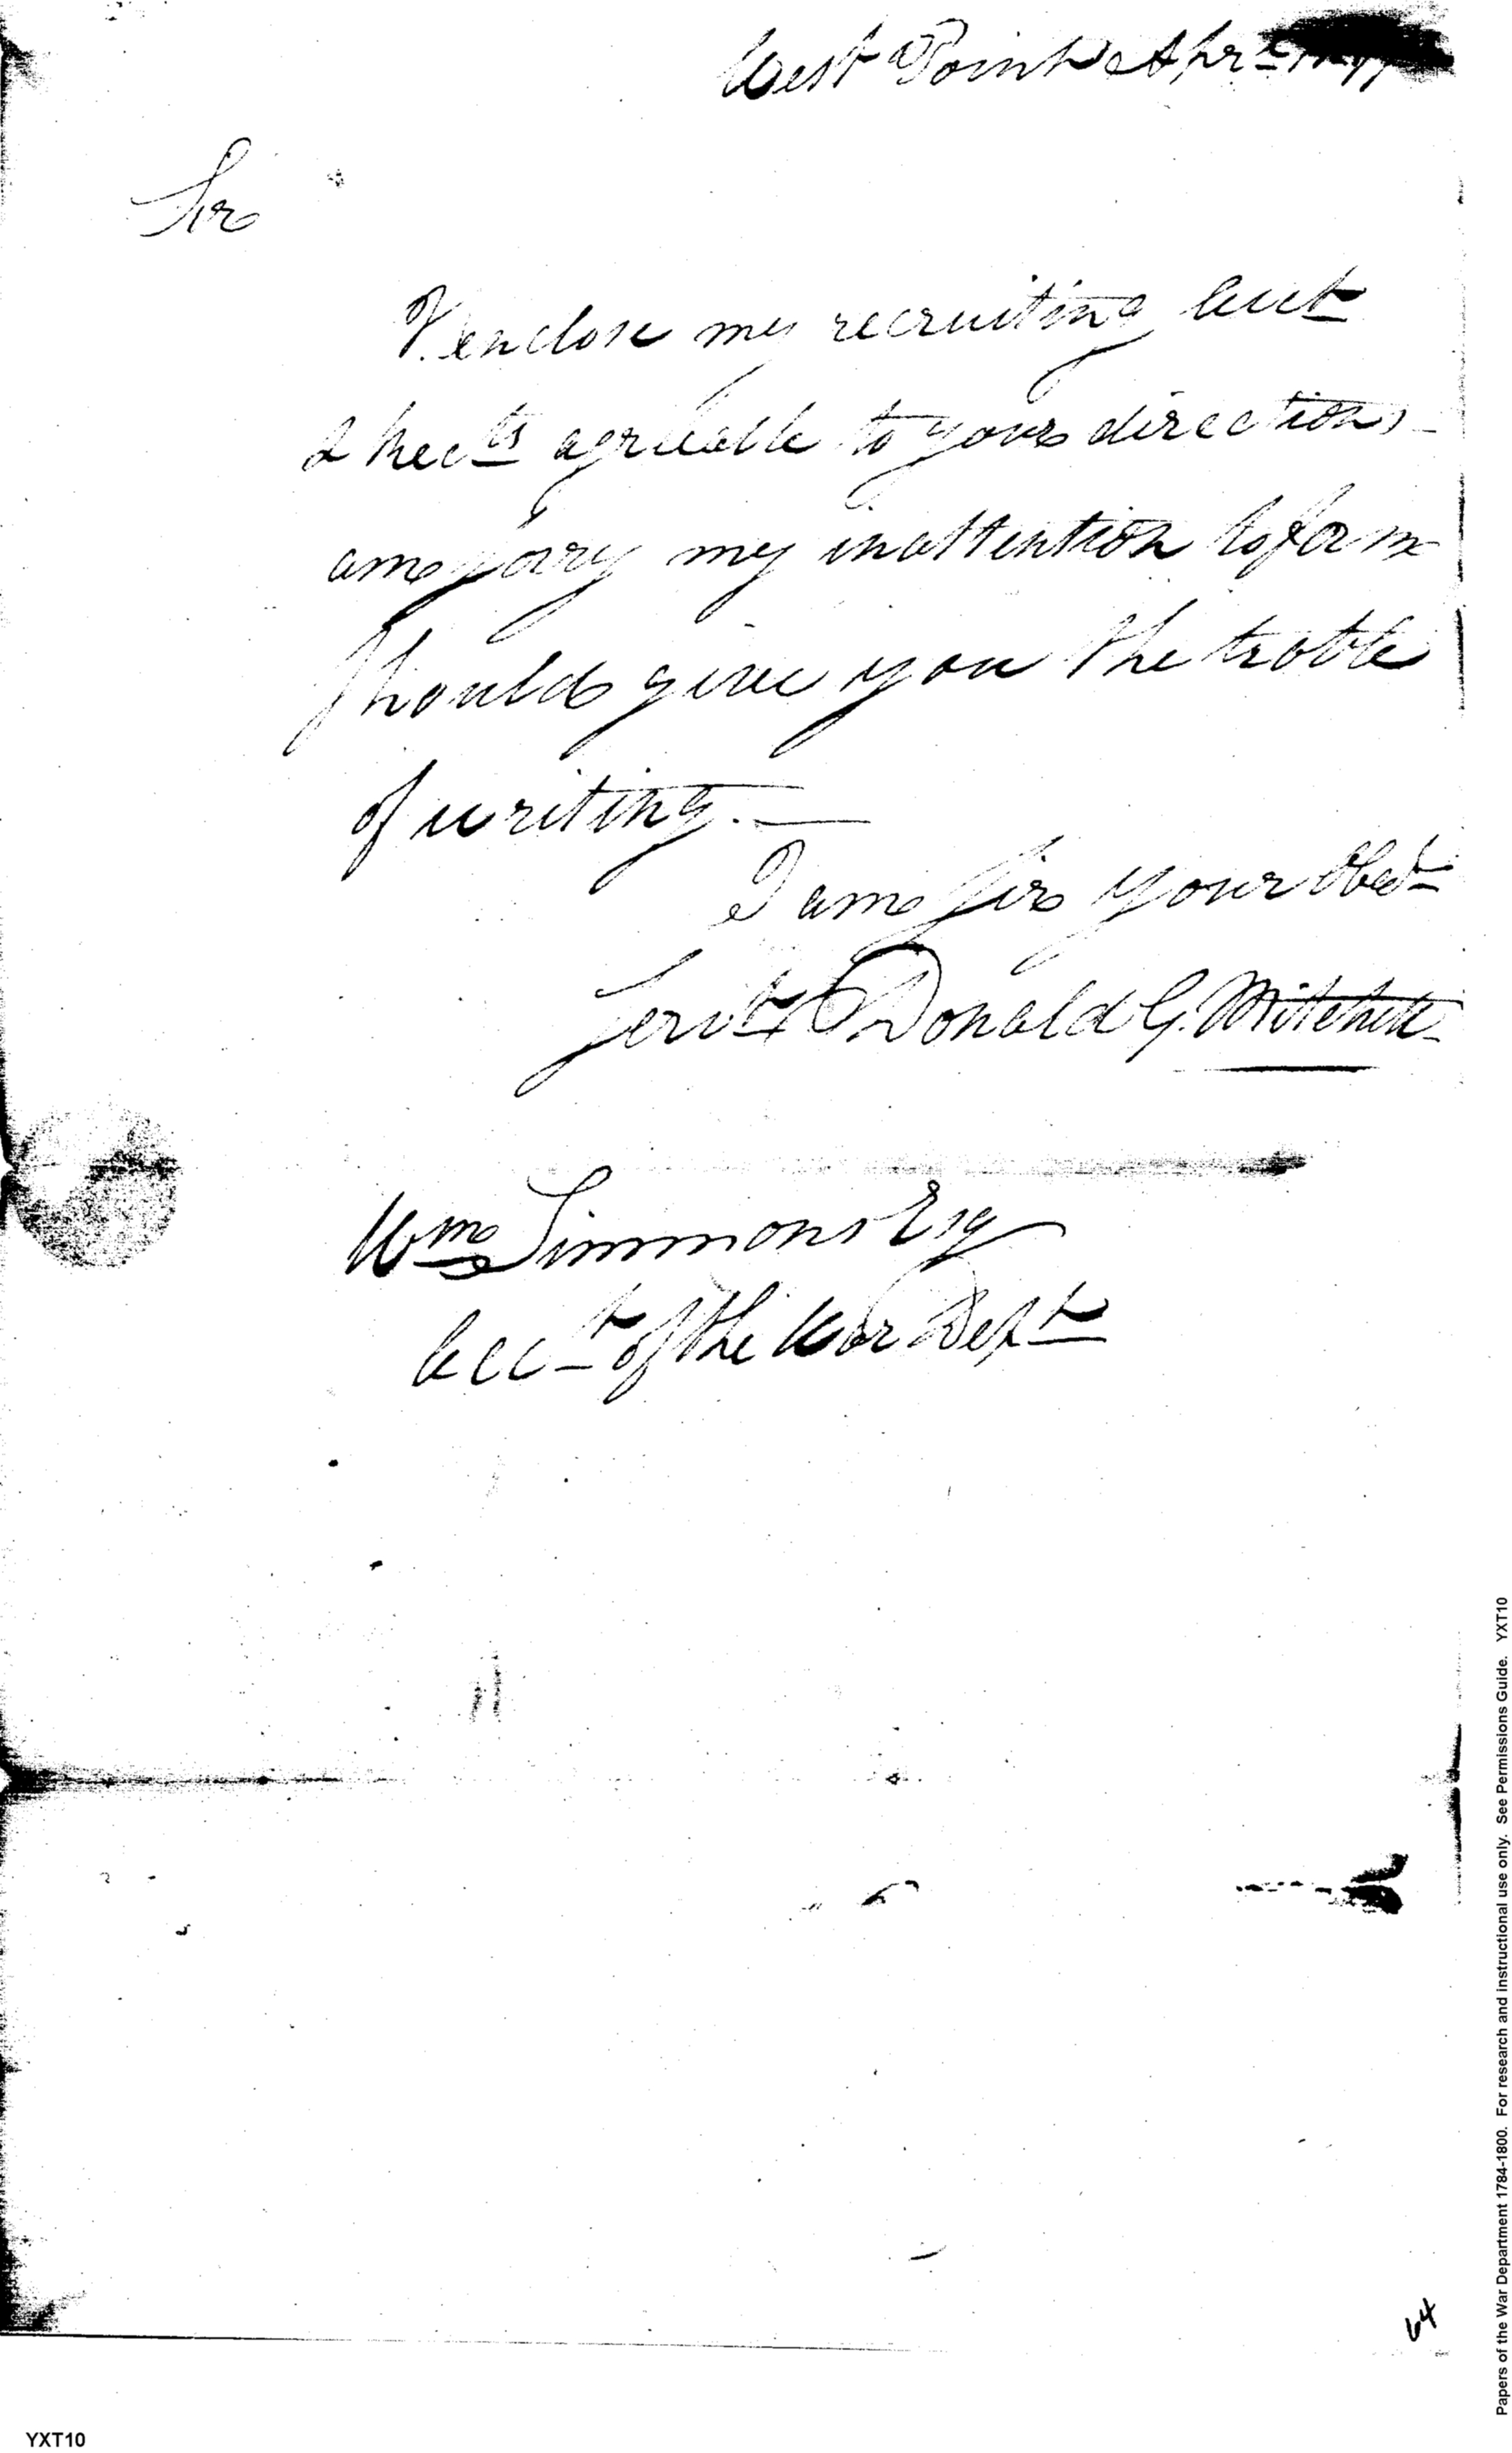 West Point Apr.
Sir
I enclose my recruiting acct
& rects agreeable to your directions
am sorry my inattention to form
should give you the troble
of writing.
I am Sir your Obedt
Servt Donald G. Mitchell
Wm Simmons Esq
Acct of the War Dept
64
YXT10
Papers of the War Department 1784-1800. For research and instructional use only. See Permissions Guide. YXT10